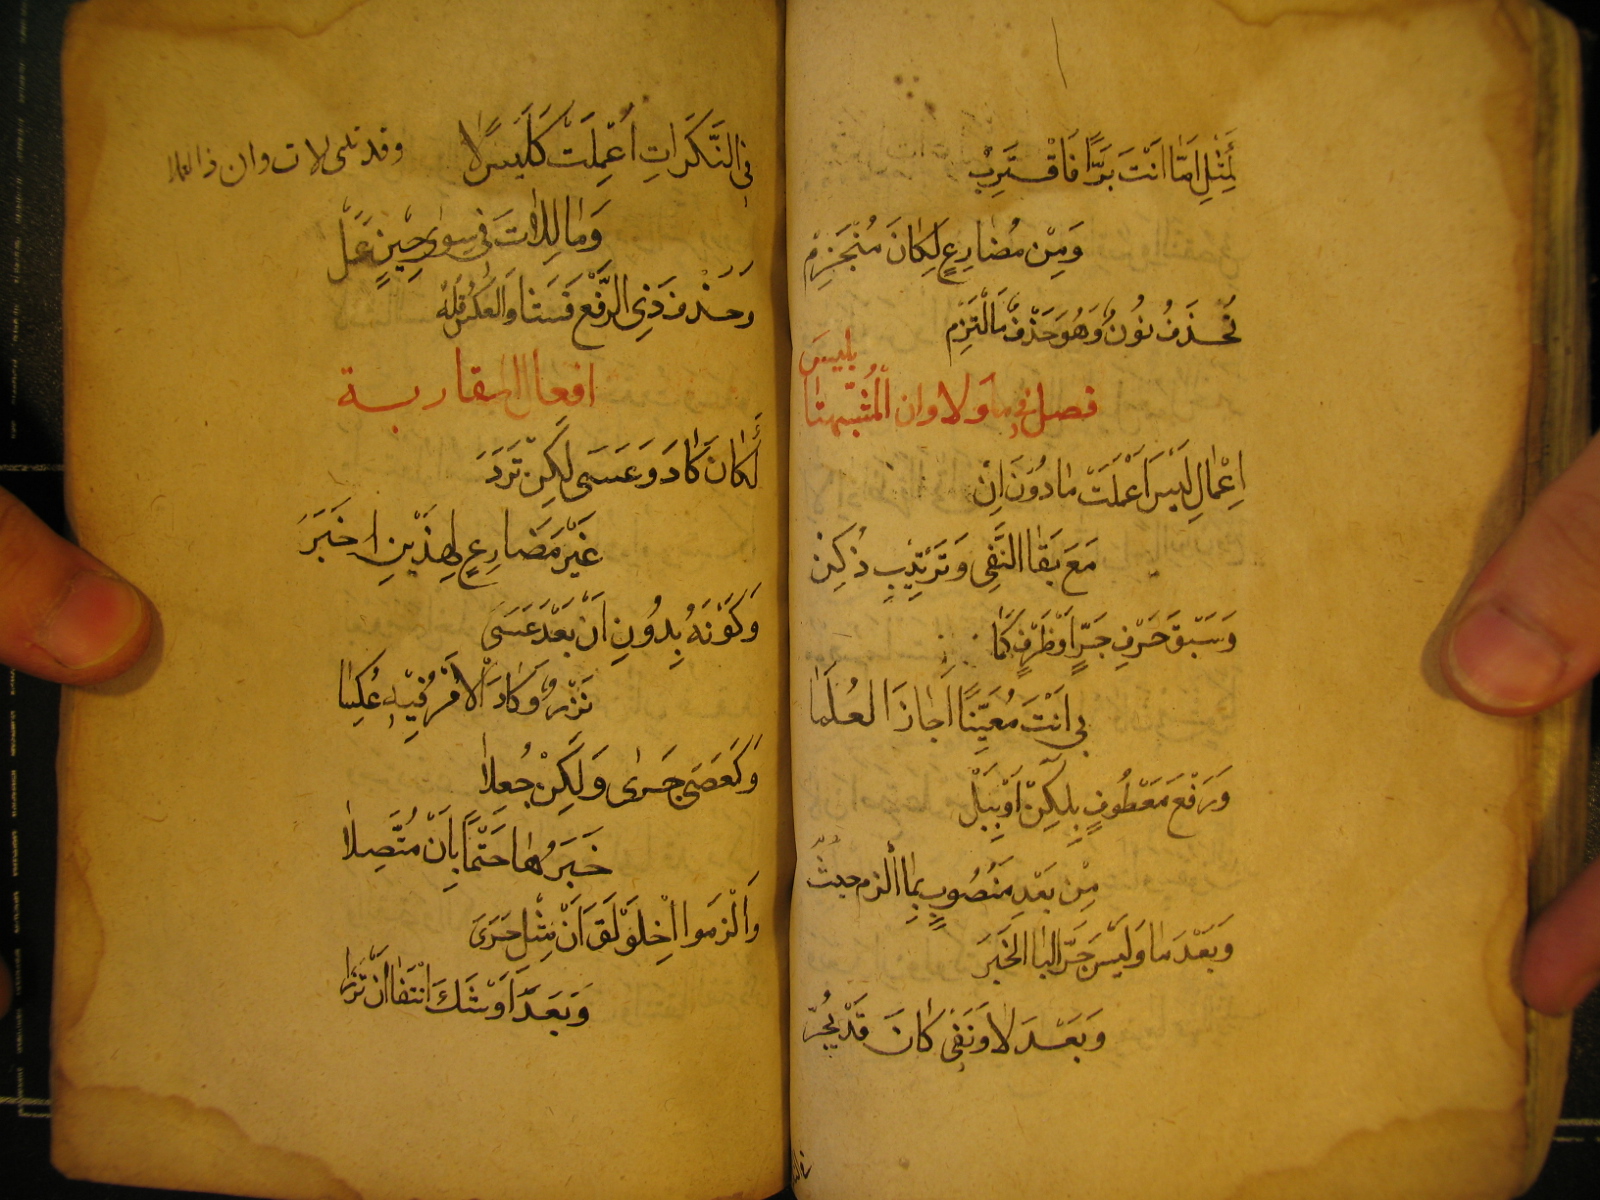 لِمِثْلِ اَمّا اَنْتَ بَرًّا فَاقْتَرِبْ
وَمِنْ مُضارِعٍ لِكانَ مُنْجَزِمْ
تُحْذَفُ نُونٌ وَهُوَ حَذْفٌ مَا الْتُزِم
فصل في ما ولا وان المُشَبَّهتا
بليسَ
اِعْمالِ لَيْسَ اُعْمِلَتْ ما دُوْنَ اِنْ
مَعَ بَقا النَّفِى وَتَرْتِيْبٍ زُكِنْ
وَسَبْقَ حَرْفِ جَرٍّ اَوْظَرْفٍ كَما
بى اَنْتَ مُعِيِّنًا اَجازَ العُلَما
وَرَفْعَ مَعْطُوفٍ بِلكِنْ اَوْبِبَلْ
مِنْ بَعْدِ مَنْصُوبٍ بِما اَلْزم حيثُ
وَبَعْدَ ما وَلَيْسَ جَرَّ البا الخَبَرَ
وَبَعْدَ لا وَنَفِى كانَ قَدْ يُجَرّ
في النَّكَراتِ اُعْمِلَتْ كَلَيْسَ لا وقد تلى لات وان ذا العملا
وَما لِلاتَ فى سِوى حِيْنٍ عَمَلْ
وَحَذْفُ ذِى الرَّفْعِ فَشا وَالعَكْسُ قَلَّ
افعال المقاربة
كَكانَ كادَ وَعَسَى لكِنْ نَدَرَ
غَيْرُ مَضارِعٍ لِهذَيْنِ خَبَرَ
وَكَوْنُهُ بِدُونِ اَنْ بَعْدَ عَسَى
نَزْرٌ وَكادَ الْاَمْرُ فيْهِ عُكِسا
وَكَعَصَى حَرى وَلكِنْ جُعِلا
خَبَرُها حَتْمًا بِاَنْ مُتَّصِلا
وَاَلْزَموا اخْلَوْلَقَ اَنْ مِثْلَ حَرَى
وَبَعْدَ اَوْشَكَ انْتَفا اَنْ نَزُرا